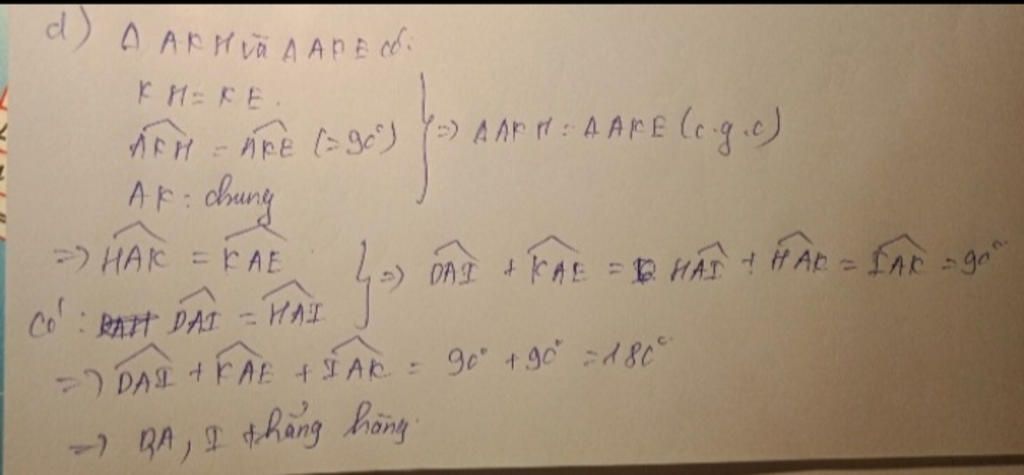 d) Δ AKH và Δ AKE có:
KH = KE.
ÂKH = ÂKE (= 90°)
AK: chung
=> Δ AKH = Δ AKE (c.g.c)
=> ĤAK = K̂AE
Có: D̂AI = ĤAI
=> D̂AI + K̂AE = ĤAI + ĤAK = ÎAK = 90°
=> D̂AI + K̂AE + ÎAK = 90° + 90° = 180°
=> DA, I thẳng hàng.